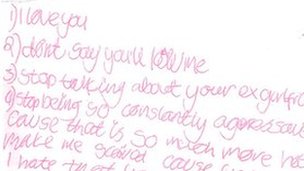 1) I love you
2) dont say you'll me
3) stop talking about your ex
4) stop being so constantly
cause that is so much more
make me scared cause
I hate that